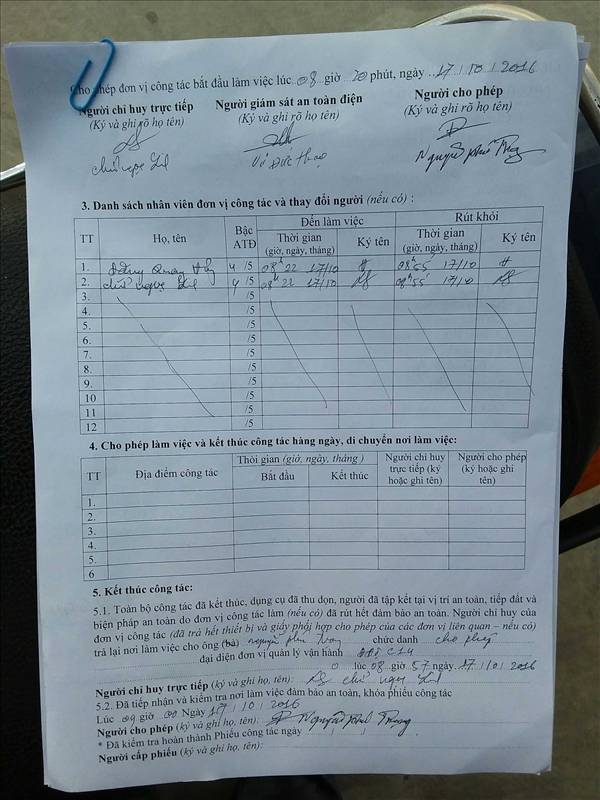 Cho phép đơn vị công tác bắt đầu làm việc lúc 08 giờ 20 phút, ngày 17/10/2016
Người chỉ huy trực tiếp Người giám sát an toàn điện Người cho phép
(Ký và ghi rõ họ tên) (Ký và ghi rõ họ tên) (Ký và ghi rõ họ tên)
Vũ Đức Thoại Nguyễn Phú Trung
3. Danh sách nhân viên đơn vị công tác và thay đổi người (nếu có) :
TT Họ, tên Bậc ATĐ Đến làm việc Rút khỏi
Thời gian (giờ, ngày, tháng) Ký tên Thời gian (giờ, ngày, tháng) Ký tên
1. Đặng Quang 4 /5 08h22 17/10 08h55 17/10
2. 4 /5 08h22 17/10 08h55 17/10
3. /5
4. /5
5. /5
6. /5
7. /5
8. /5
9. /5
10 /5
11 /5
12 /5
4. Cho phép làm việc và kết thúc công tác hàng ngày, di chuyển nơi làm việc:
TT Địa điểm công tác Thời gian (giờ, ngày, tháng ) Người chỉ huy trực tiếp (ký hoặc ghi tên) Người cho phép (ký hoặc ghi tên)
Bắt đầu Kết thúc
1.
2.
3.
4.
5.
6
5. Kết thúc công tác:
5.1. Toàn bộ công tác đã kết thúc, dụng cụ đã thu dọn, người đã tập kết tại vị trí an toàn, tiếp đất và
biện pháp an toàn do đơn vị công tác làm (nếu có) đã rút hết đảm bảo an toàn. Người chỉ huy của
đơn vị công tác (đã trả hết thiết bị và giấy phối hợp cho phép của các đơn vị liên quan – nếu có)
trả lại nơi làm việc cho ông (bà) Nguyễn Phú Trung chức danh cho phép
đại diện đơn vị quản lý vận hành
lúc 08 giờ 57 ngày 17/10/2016
Người chỉ huy trực tiếp (ký và ghi họ, tên):
5.2. Đã tiếp nhận và kiểm tra nơi làm việc đảm bảo an toàn, khóa phiếu công tác
Lúc 09 giờ 00 Ngày 17/10/2016
Người cho phép (ký và ghi họ, tên): Nguyễn Phú Trung
* Đã kiểm tra hoàn thành Phiếu công tác ngày / /
Người cấp phiếu (ký và ghi họ, tên):